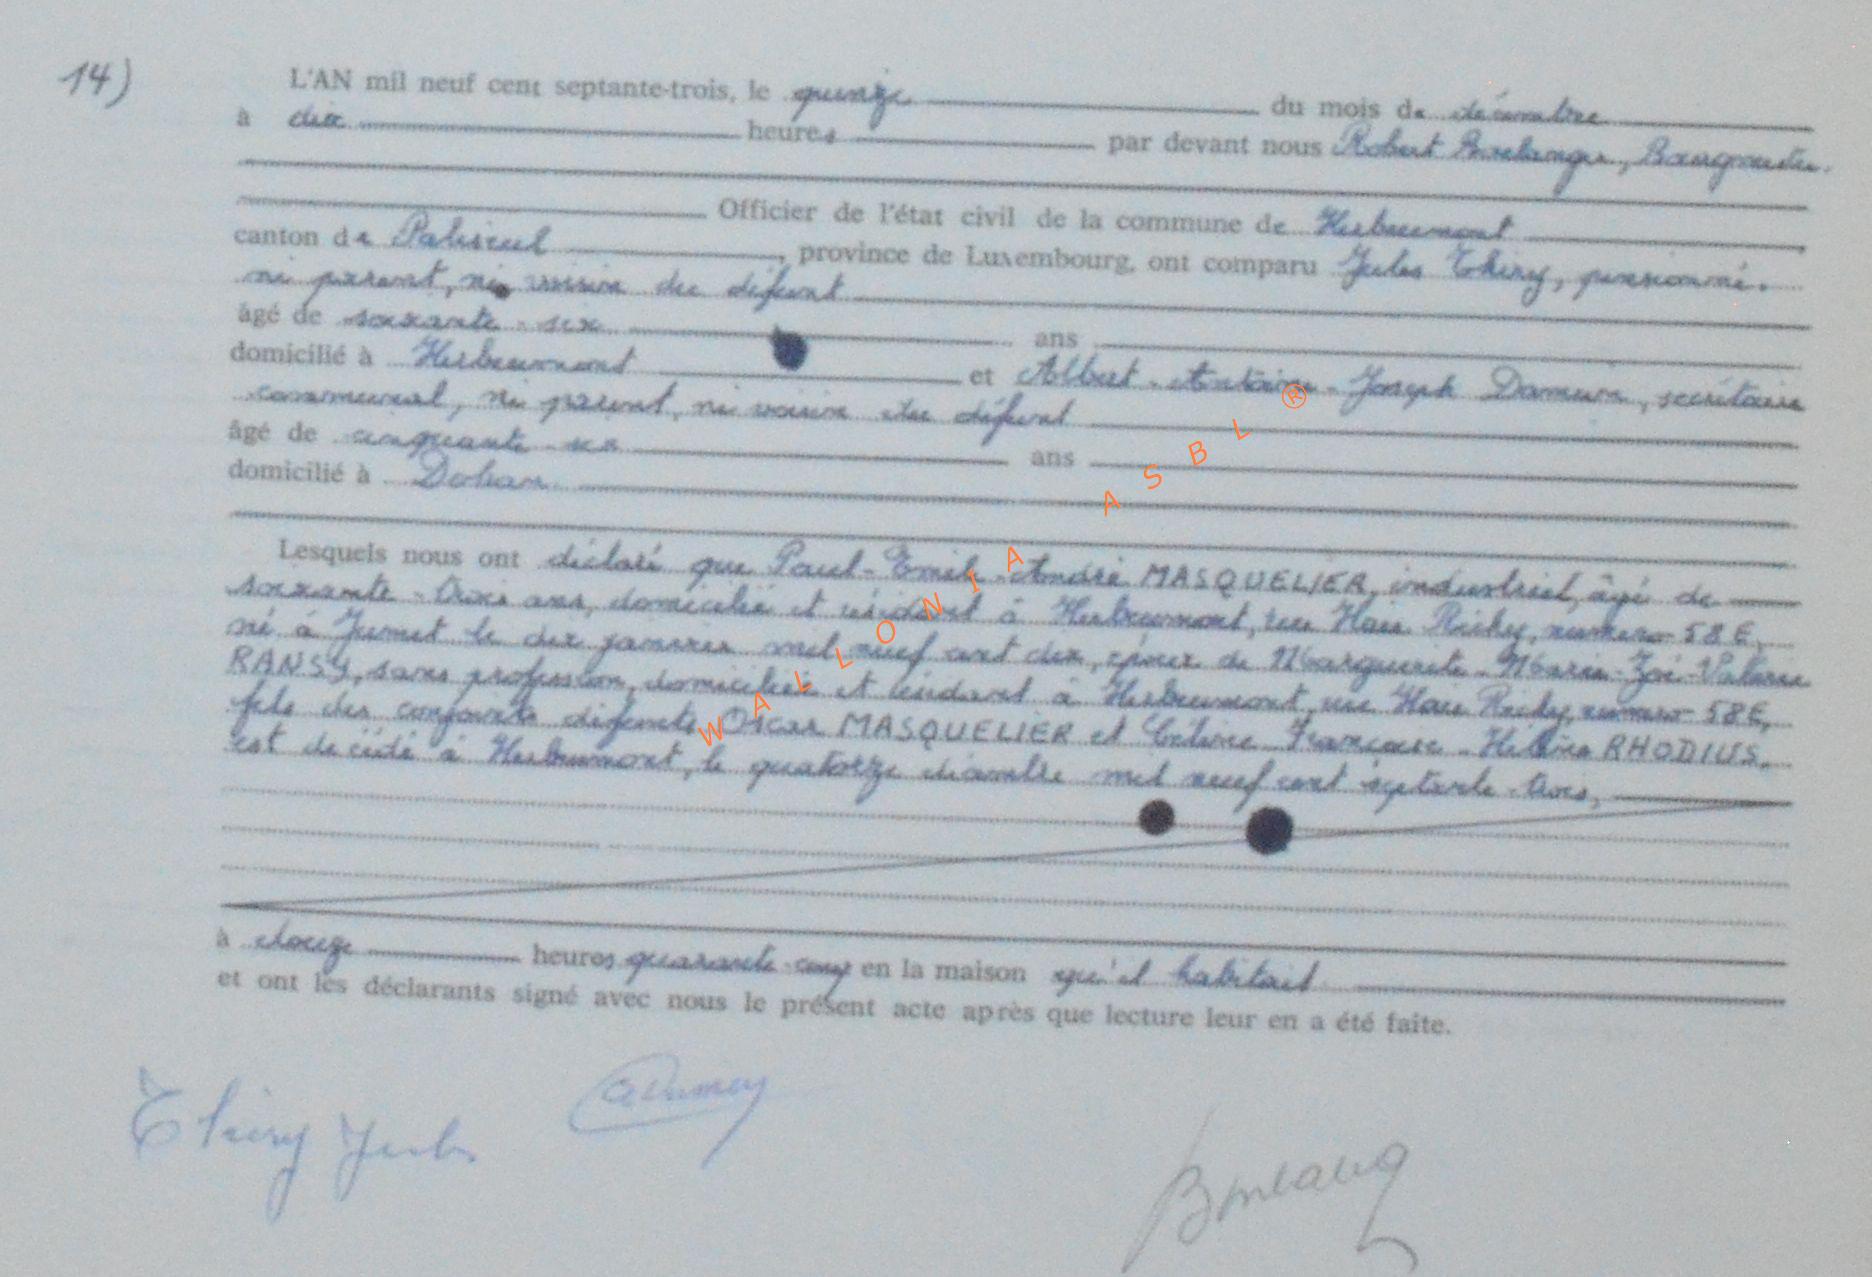 14)
L'AN mil neuf cent septante-trois, le quinze du mois de décembre
à dix heures par devant nous Robert Boulanger, Bourgmestre.
Officier de l'état civil de la commune de Herbeumont
canton de Paliseul, province de Luxembourg, ont comparu Jules Thiry, pensionné.
ni parent, ni voisin du défunt
âgé de soixante-six ans
domicilié à Herbeumont et Albert-Antoine-Joseph Damien, secrétaire
communal, ni parent, ni voisin du défunt
âgé de cinquante-six ans
domicilié à Dohan
Lesquels nous ont déclaré que Paul-Emile-André MASQUELIER, industriel, âgé de
soixante-trois ans, domicilié et résidant à Herbeumont, rue Haie Richy, numéro 58E,
né à Jumet le dix janvier mil neuf cent dix, époux de Marguerite-Marie-Zoé-Valérie
RANSY, sans profession, domiciliée et résidant à Herbeumont, rue Haie Richy, numéro 58E,
fils des conjoints défunts Oscar MASQUELIER et Céline Françoise-Hélène RHODIUS.
est décédé à Herbeumont, le quatorze décembre mil neuf cent septante-trois,
à douze heures quarante-cinq en la maison qu'il habitait
et ont les déclarants signé avec nous le présent acte après que lecture leur en a été faite.
Thiry Jules
Boulang
WALLONIA ASBL ®